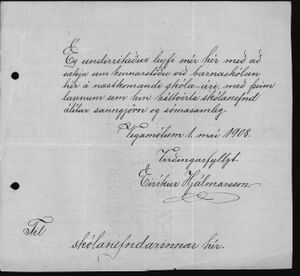 Eg undirritaður leyfi mér hér með að
sækja um kennarstöðu við barnaskólan
hér á næstkomandi skóla-ári, með þeim
launum sem hin háttvirta skólanefnd
álítur sanngjörn og sómasamleg.
Vegamótum 1. maí 1908.
Virðingarfyllst
Eiríkur Hjálmarsson
Til
skólanefndarinnar hér.